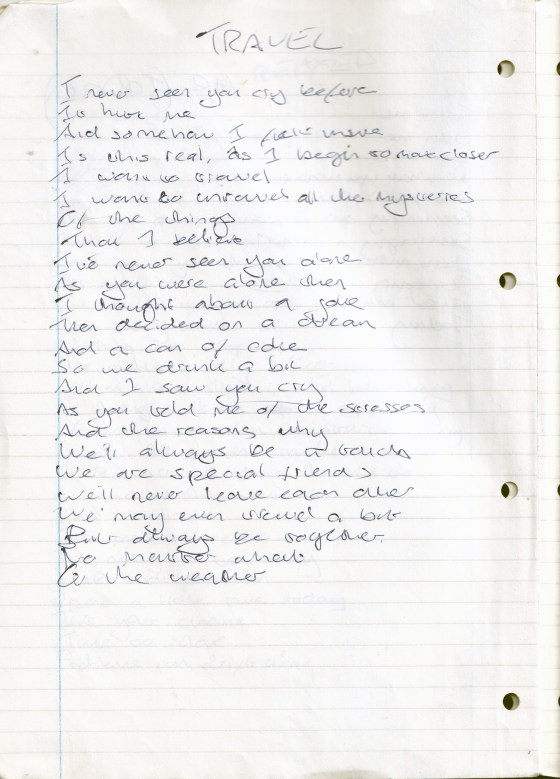 TRAVEL
I never seen you cry before
It hurt me
And somehow I felt more
Is this real, as I begin to move closer
I want to travel
I want to unravel all the mysteries
Of the things
That I believe
I've never seen you alone
As you were alone then
I thought about a joke
Then decided on a dream
And a can of coke
So we drunk a bit
And I saw you cry
As you told me of the stresses
And the reasons why
We'll always be a
We are special friends
We'll never leave each other
We may even travel a bit
But always be together
No matter what
Is the weather